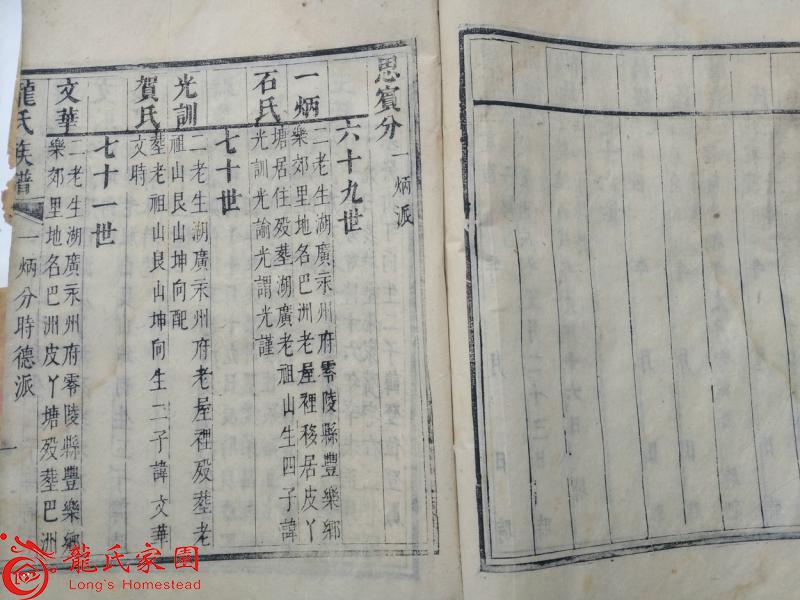 思賓分 一炳派
六十九世
一炳
石氏
二老生湖廣永州府零陵縣豐樂鄉
樂郊里地名巴洲老屋裡移居皮丫
塘居住殁塟湖廣老祖山生四子諱
光訓光諭光謂光謹
七十世
光訓
賀氏
二老生湖廣永州府老屋裡殁塟老
祖山艮山坤向配
塟老祖山艮山坤向生二子諱文華
文時
七十一世
文華
二老生湖廣永州府零陵縣豐樂鄉
樂郊里地名巴洲皮丫塘殁塟巴洲
龍氏族譜 一炳分時德派 一
龍氏家園
Long's Homestead